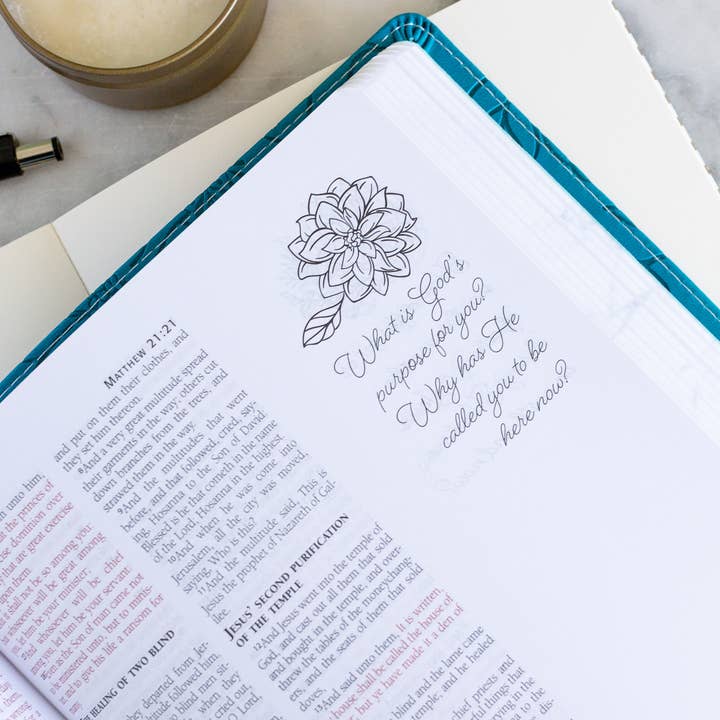 MATTHEW 21:21
What is God's
purpose for you?
Why has He
called you to be
here now?
and put on them their clothes, and
they set him thereon.
8And a very great multitude spread
their garments in the way; others cut
down branches from the trees, and
strawed them in the way.
9And the multitudes that went
before, and that followed, cried, say-
ing, Hosanna to the Son of David:
Blessed is he that cometh in the name
of the Lord; Hosanna in the highest.
10And when he was come into
Jerusalem, all the city was moved,
saying, Who is this?
11And the multitude said, This is
Jesus the prophet of Nazareth of Gal-
ilee.
JESUS' SECOND PURIFICATION
OF THE TEMPLE
12And Jesus went into the temple of
God, and cast out all them that sold
and bought in the temple, and over-
threw the tables of the moneychang-
ers, and the seats of them that sold
doves,
13And said unto them, It is written,
house shall be called the house of
er; but ye have made it a den of
blind and the lame came
and he healed
chief priests and
things that
in the
unto him,
the princes of
ise dominion over
y that are great exercise
upon them.
shall not be so among you:
whosoever will be great among
be your minister;
And whosoever will be chief
you, let him be your servant:
Even as the Son of man came not
ministered unto, but to minis-
and to give his life a ransom for
HEALING OF TWO BLIND
they departed from Jer-
multitude followed him.
two blind men sit-
cried out,
O Lord,